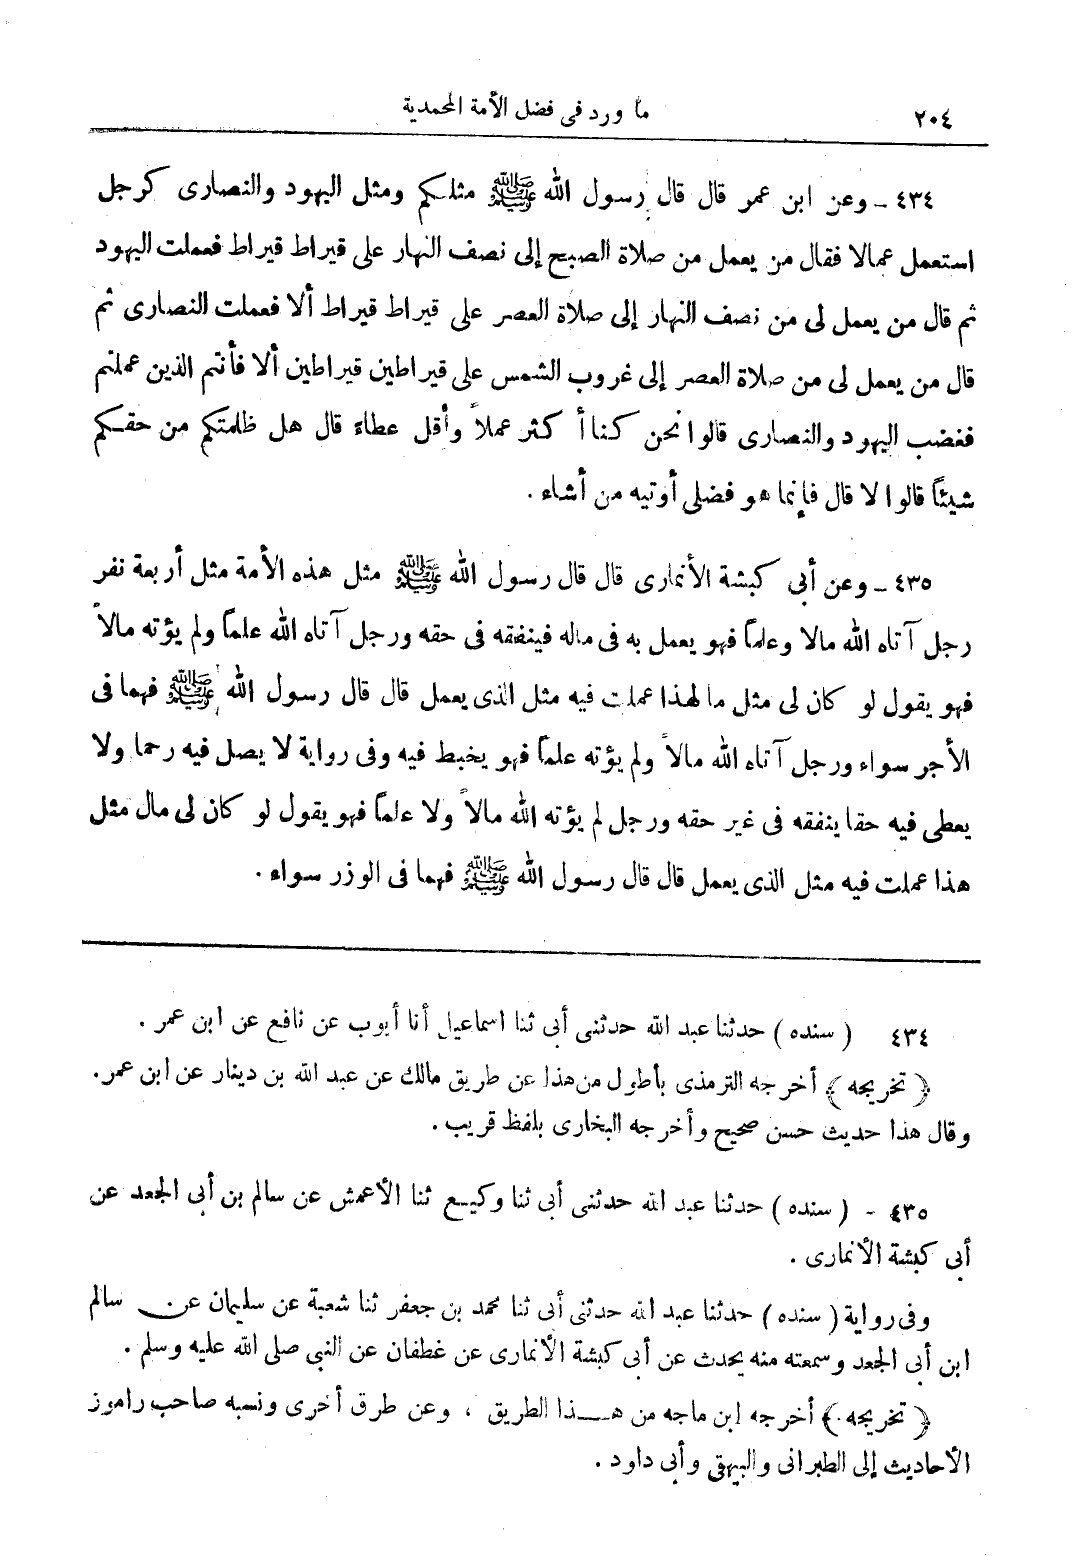 ٢٠٤ ما ورد فى فضل الأمة المحمدية
٤٣٤ ـ وعن ابن عمر قال قال رسول الله ﷺ مثلكم ومثل اليهود والنصارى كرجل
استعمل عمالا فقال من يعمل من صلاة الصبح إلى نصف النهار على قيراط قيراط فعملت اليهود
ثم قال من يعمل لى من نصف النهار إلى صلاة العصر على قيراط قيراط ألا فعملت النصارى ثم
قال من يعمل لى من صلاة العصر إلى غروب الشمس على قيراطين قيراطين ألا فأنتم الذين عملتم
فغضب اليهود والنصارى قالوا نحن كنا أكثر عملاً وأقل عطاء قال هل ظلمتكم من حقكم
شيئاً قالوا لا قال فإنما هو فضلى أوتيه من أشاء .
٤٣٥ ـ وعن أبى كبشة الأنمارى قال قال رسول الله ﷺ مثل هذه الأمة مثل أربعة نفر
رجل آتاه الله مالا وعلماً فهو يعمل به فى ماله فينفقه فى حقه ورجل آتاه الله علماً ولم يؤته مالاً
فهو يقول لو كان لى مثل ما لهذا عملت فيه مثل الذى يعمل قال قال رسول الله ﷺ فهما فى
الأجر سواء ورجل آتاه الله مالاً ولم يؤته علماً فهو يخبط فيه وفى رواية لا يصل فيه رحما ولا
يعطى فيه حقا ينفقه فى غير حقه ورجل لم يؤته الله مالاً ولا علماً فهو يقول لو كان لى مال مثل
هذا عملت فيه مثل الذى يعمل قال قال رسول الله ﷺ فهما فى الوزر سواء .
٤٣٤ ( سنده ) حدثنا عبد الله حدثنى أبى ثنا اسماعيل أنا أيوب عن نافع عن ابن عمر .
﴿ تخريجه ﴾ أخرجه الترمذى بأطول من هذا عن طريق مالك عن عبد الله بن دينار عن ابن عمر.
وقال هذا حديث حسن صحيح وأخرجه البخارى بلفظ قريب .
٤٣٥ - ( سنده ) حدثنا عبد الله حدثنى أبى ثنا وكيع ثنا الأعمش عن سالم بن أبى الجعد عن
أبى كبشة الأنمارى .
وفى رواية ( سنده ) حدثنا عبد الله حدثنى أبى ثنا محمد بن جعفر ثنا شعبة عن سليمان عن سالم
ابن أبى الجعد وسمعته منه يحدث عن أبى كبشة الأنمارى عن غطفان عن النبى صلى الله عليه وسلم .
﴿ تخريجه ﴾ أخرجه ابن ماجه من هذا الطريق ، وعن طرق أخرى ونسبه صاحب راموز
الأحاديث إلى الطبرانى والبيهقى وأبى داود .